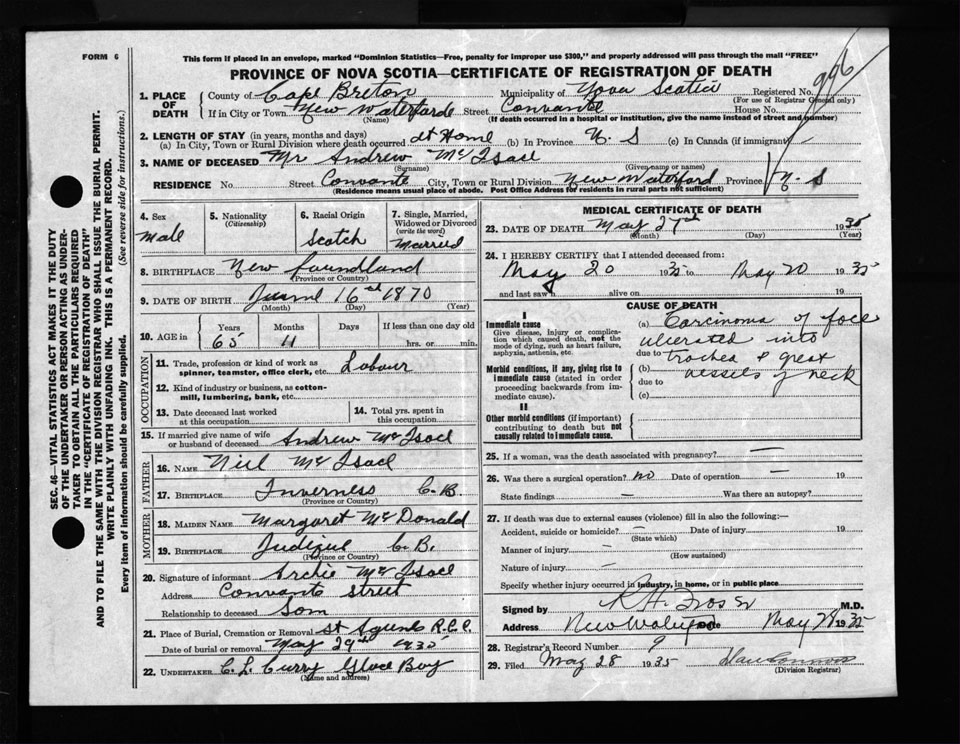 FORM 6
This form if placed in an envelope, marked "Dominion Statistics—Free, penalty for improper use $300," and properly addressed will pass through the mail "FREE"
PROVINCE OF NOVA SCOTIA—CERTIFICATE OF REGISTRATION OF DEATH
996
1. PLACE OF DEATH { County of Cape Breton Municipality of Nova Scotia Registered No.
(For use of Registrar General only)
If in City or Town New Waterforde Street Convante House No.
(Name) (If death occurred in a hospital or institution, give the name instead of street and number)
2. LENGTH OF STAY (in years, months and days)
(a) In City, Town or Rural Division where death occurred at Home (b) In Province N. S (c) In Canada (if immigrant)
3. NAME OF DECEASED Mr Andrew Mc Isacl
(Surname) (Given name or names)
RESIDENCE No. Street Convante City, Town or Rural Division New Waterford Province N. S
(Residence means usual place of abode. Post Office Address for residents in rural parts not sufficient)
4. Sex Male
5. Nationality (Citizenship)
6. Racial Origin Scotch
7. Single, Married, Widowed or Divorced (write the word) Married
8. BIRTHPLACE New foundland
(Province or Country)
9. DATE OF BIRTH 16 1870
(Month) (Day) (Year)
10. AGE in { Years 65 Months 11 Days If less than one day old hrs. or min.
OCCUPATION
11. Trade, profession or kind of work as spinner, teamster, office clerk, etc. Labour
12. Kind of industry or business, as cotton-mill, lumbering, bank, etc.
13. Date deceased last worked at this occupation
14. Total yrs. spent in this occupation
15. If married give name of wife or husband of deceased Andrew Mc Isacl
FATHER
16. NAME Niel Mc Isacl
17. BIRTHPLACE Inverness C. B.
(Province or Country)
MOTHER
18. MAIDEN NAME Margaret Mc Donald
19. BIRTHPLACE C. B.
(Province or Country)
20. Signature of informant Archie Mc Isacl
Address Convante Street
Relationship to deceased Som
21. Place of Burial, Cremation or Removal St Agnes
Date of burial or removal May 29th 1935
22. UNDERTAKER C. L. Curry Glace Bay
(Name and address)
MEDICAL CERTIFICATE OF DEATH
23. DATE OF DEATH May 27th 1935
(Month) (Day) (Year)
24. I HEREBY CERTIFY that I attended deceased from:
May 20 1935 to May 20 1935
and last saw h alive on 19
CAUSE OF DEATH
I
Immediate cause
Give disease, injury or complication which caused death, not the mode of dying, such as heart failure, asphyxia, asthenia, etc.
(a) Carcinoma of face
ulcerated into
due to trachea & great
Morbid conditions, if any, giving rise to immediate cause (stated in order proceeding backwards from immediate cause).
(b) vessels of neck
due to
(c)
II
Other morbid conditions (if important) contributing to death but not causally related to immediate cause.
25. If a woman, was the death associated with pregnancy? —
26. Was there a surgical operation? no Date of operation — 19
State findings — Was there an autopsy?
27. If death was due to external causes (violence) fill in also the following:—
Accident, suicide or homicide? — Date of injury 19
(State which)
Manner of injury —
(How sustained)
Nature of injury —
Specify whether injury occurred in industry, in home, or in public place
Signed by M.D.
Address Date May 28 1935
28. Registrar's Record Number 9
29. Filed May 28 1935
(Division Registrar)
SEC. 46—VITAL STATISTICS ACT MAKES IT THE DUTY
OF THE UNDERTAKER OR PERSON ACTING AS UNDER-
TAKER TO OBTAIN ALL THE PARTICULARS REQUIRED
IN THE "CERTIFICATE OF REGISTRATION OF DEATH"
AND TO FILE THE SAME WITH THE DIVISION REGISTRAR WHO SHALL ISSUE THE BURIAL PERMIT.
WRITE PLAINLY WITH UNFADING INK. THIS IS A PERMANENT RECORD.
Every item of information should be carefully supplied. (See reverse side for instructions.)